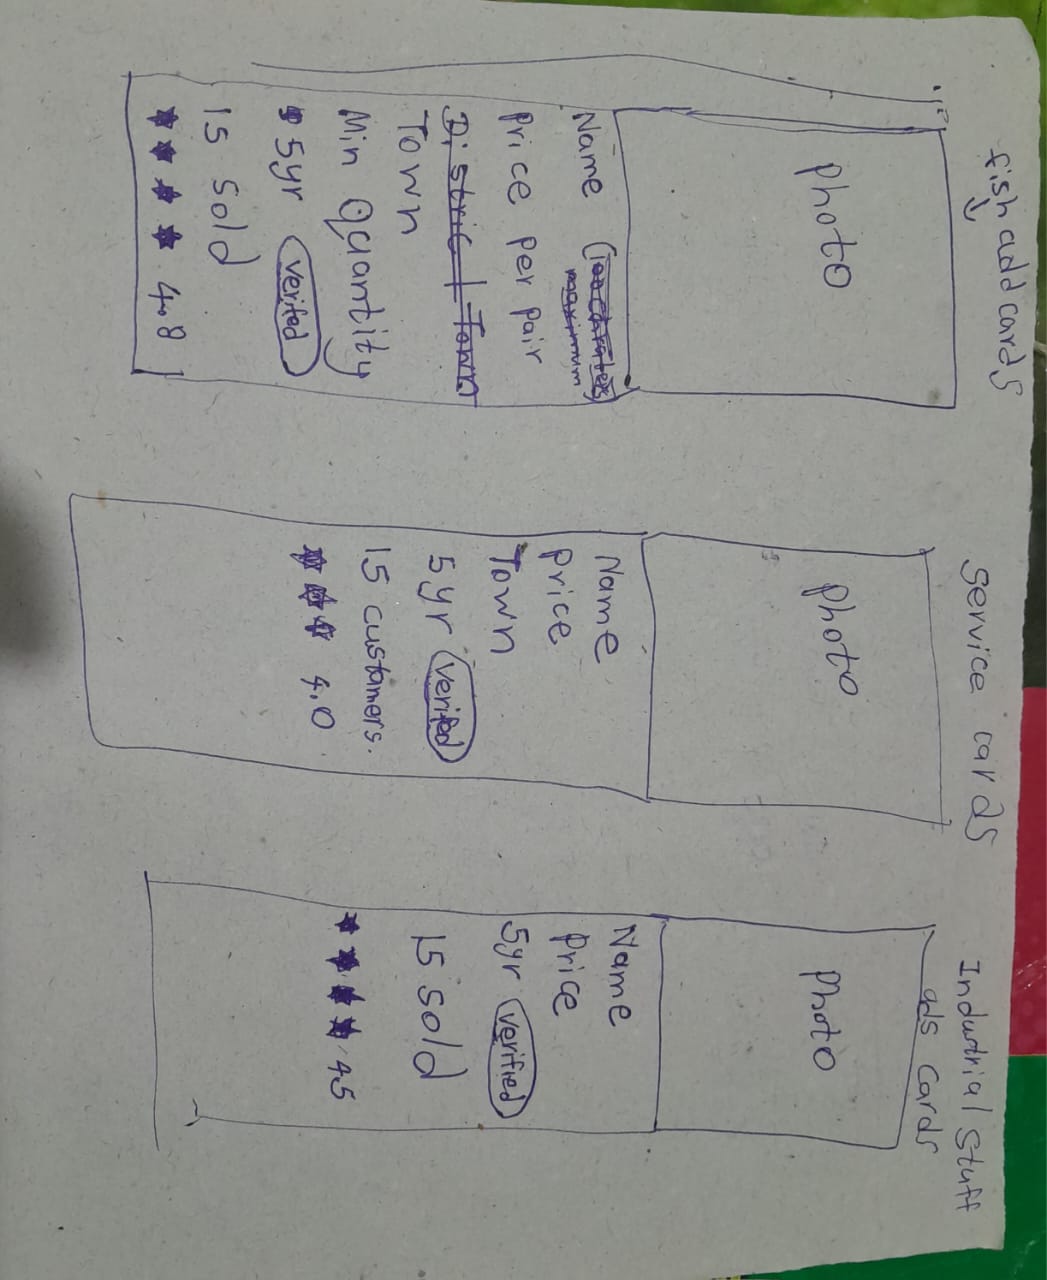 fish add cards
photo
Name
price per pair
District Town
Town
Min Quantity
5yr verifed
15 sold
4.8
service cards
photo
Name
price
Town
5yr verifed
15 custamers.
4.0
Industrial stuff
ads cards
photo
Name
price
5yr verified
15 sold
45